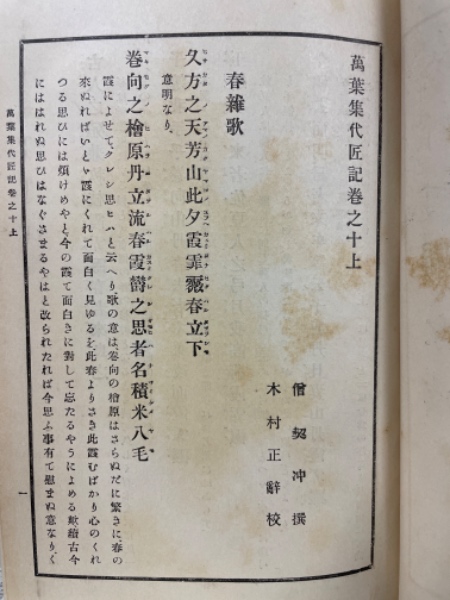 萬葉集代匠記卷之十上
僧契冲撰
木村正辭校
春雜歌
久方之天芳山此夕霞霏霺春立下
意明なり、
卷向之檜原丹立流春霞欝之思者名積米八毛
霞によせて、クレシ思ヒハと云へり歌の意は、卷向の檜原はさらぬだに繁きに、春の
來ぬればいとゞ霞にくれて面白く見ゆるを、此春よりさき此霞むばかり心のくれ
つる思ひには頬けめやと、今の霞て面白きに對して忘たるやうによめる歟、續古今
にははれぬ思ひはなぐさまるやはと改られたれば今思ふ事有て慰まぬ意なり、く
萬葉集代匠記卷之十上
一